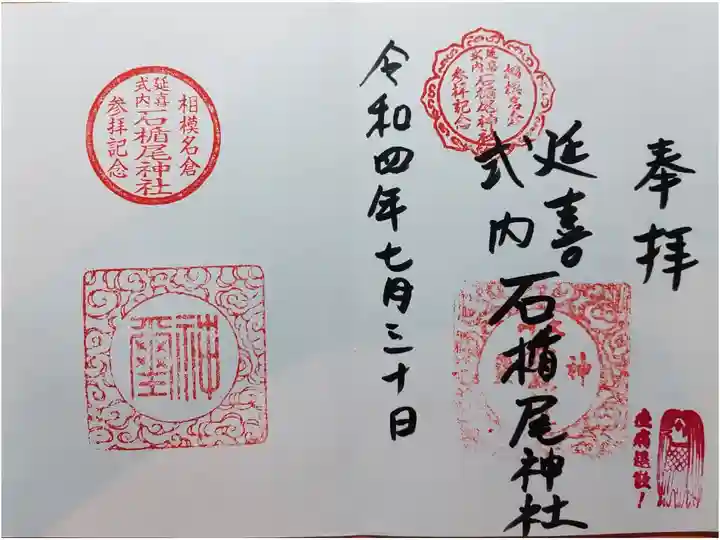 奉拝
延喜
式内
石楯尾神社
令和四年七月三十日
相模名倉
延喜
式内
石楯尾神社
参拝記念
相模名倉
延喜
式内
石楯尾神社
参拝記念
神璽
神
疫病退散！